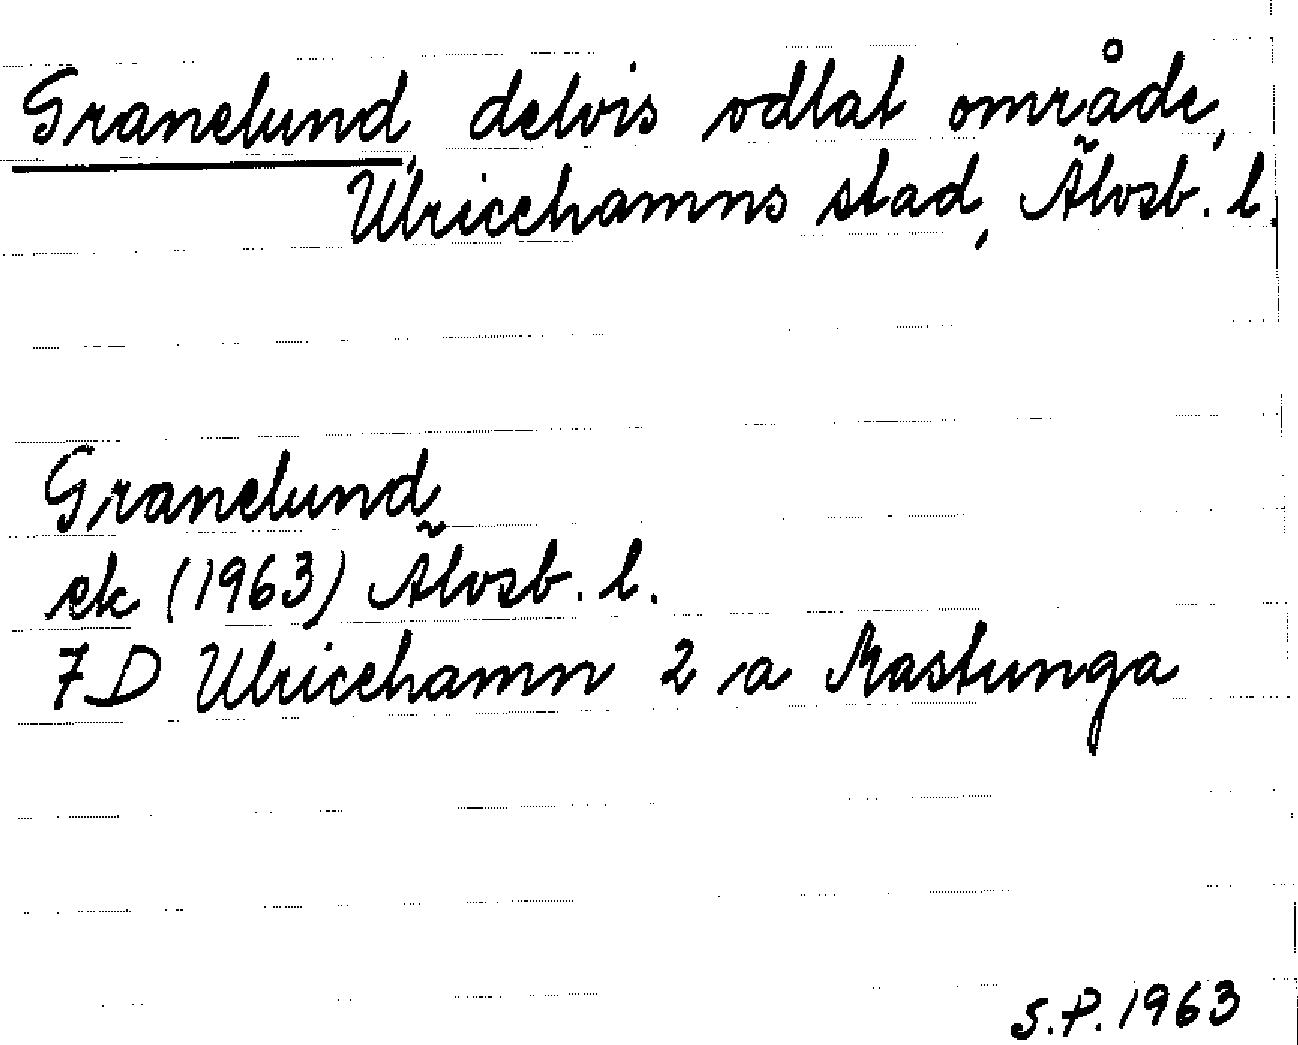 Granelund, delvis odlat område,
Ulricehamns stad, Älvsb. l.
Granelund
ek (1963) Älvsb. l.
7D Ulricehamn 2 a Rastunga
S.P. 1963